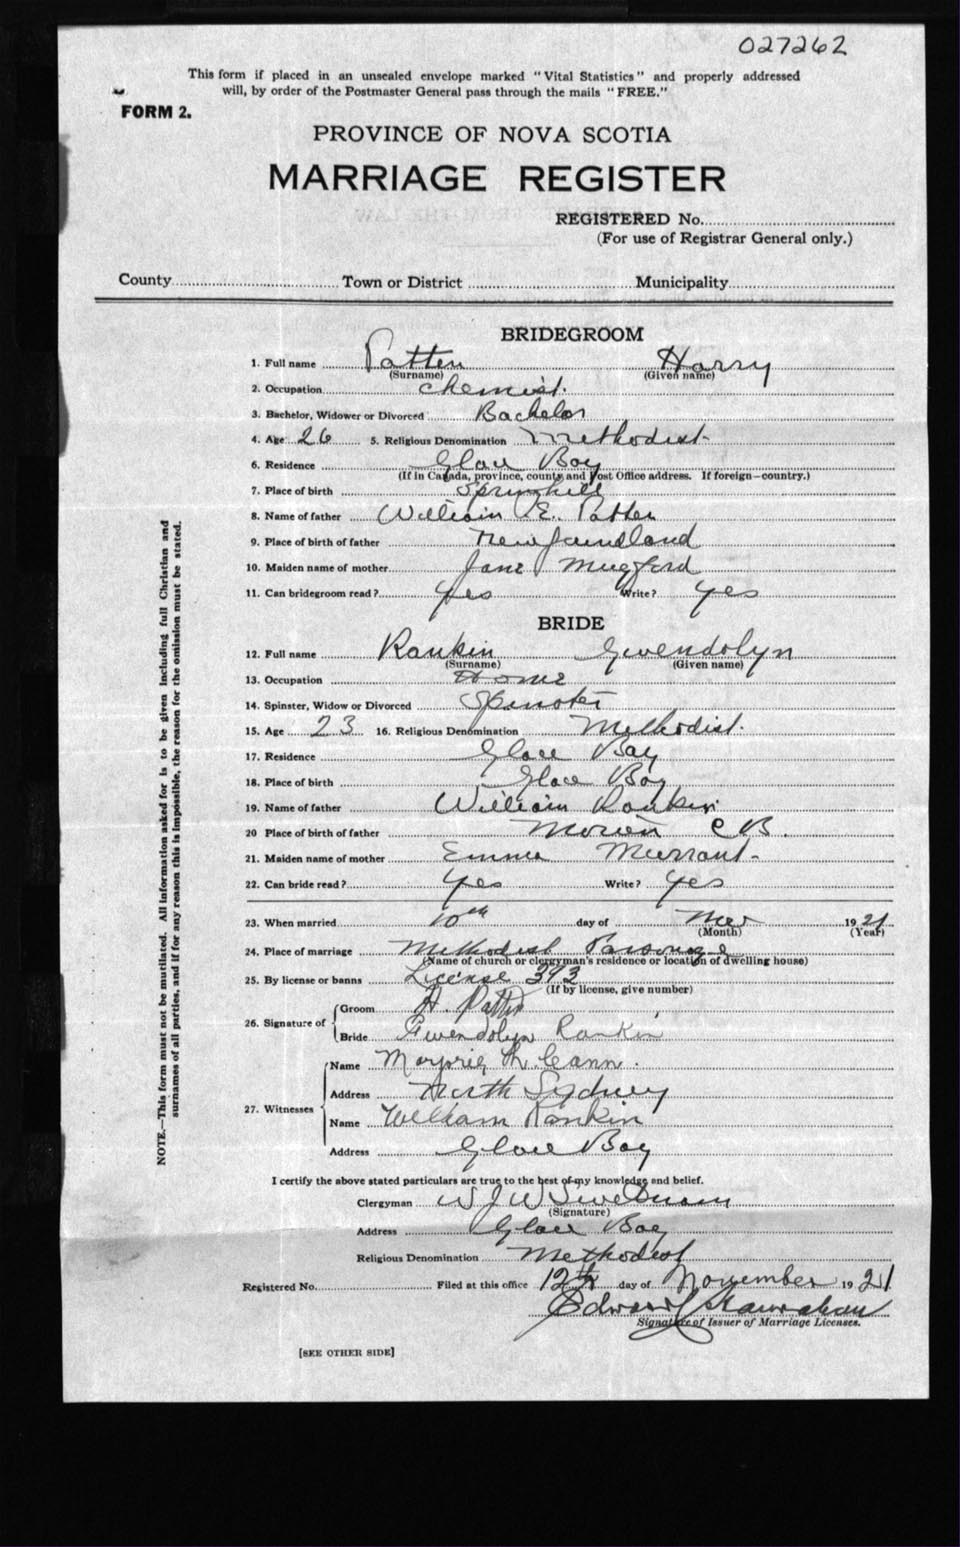 027262
This form if placed in an unsealed envelope marked "Vital Statistics" and properly addressed
will, by order of the Postmaster General pass through the mails "FREE."
FORM 2.
PROVINCE OF NOVA SCOTIA
MARRIAGE REGISTER
REGISTERED No.
(For use of Registrar General only.)
County Town or District Municipality
BRIDEGROOM
1. Full name Patten Harry
(Surname) (Given name)
2. Occupation Chemist.
3. Bachelor, Widower or Divorced Bachelor
4. Age 26 5. Religious Denomination Methodist
6. Residence Glace Bay
(If in Canada, province, county and Post Office address. If foreign—country.)
7. Place of birth Springhill
8. Name of father William E. Patten
9. Place of birth of father Newfoundland
10. Maiden name of mother Jane Mugford
11. Can bridegroom read? Yes Write? Yes
BRIDE
12. Full name Rankin Gwendolyn
(Surname) (Given name)
13. Occupation Home
14. Spinster, Widow or Divorced Spinster
15. Age 23 16. Religious Denomination Methodist.
17. Residence Glace Bay
18. Place of birth Glace Bay
19. Name of father William Rankin
20 Place of birth of father Morien C B.
21. Maiden name of mother Emma
22. Can bride read? Yes Write? Yes
23. When married 10th day of Nov 1921
(Month) (Year)
24. Place of marriage Methodist Parsonage
(Name of church or clergyman's residence or location of dwelling house)
25. By license or banns License 393
(If by license, give number)
26. Signature of Groom H. Patten
Bride Gwendolyn Rankin
27. Witnesses Name Marjorie McCann.
Address North Sydney
Name William Rankin
Address Glace Bay
I certify the above stated particulars are true to the best of my knowledge and belief.
Clergyman W J W Swetnam
(Signature)
Address Glace Bay
Religious Denomination Methodist
Registered No. Filed at this office 12th day of November 1921
Edward
Signature of Issuer of Marriage Licenses.
[SEE OTHER SIDE]
NOTE.—This form must not be mutilated. All information asked for is to be given including full Christian and
surnames of all parties, and if for any reason this is impossible, the reason for the omission must be stated.